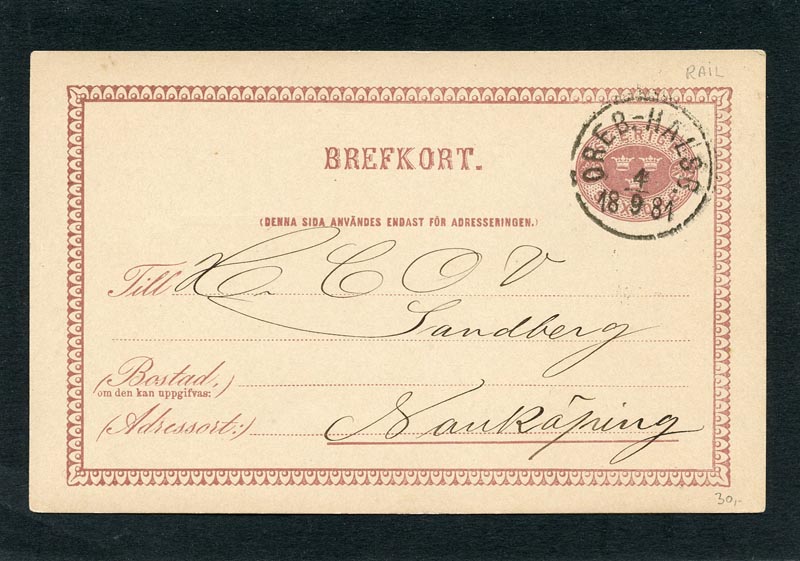 RAIL
BREFKORT.
ÖREB.-HALSB.
4
18 9 81
(DENNA SIDA ANVÄNDES ENDAST FÖR ADRESSERINGEN.)
Till H. C O V
Sandberg
(Bostad,)
om den kan uppgifvas:
(Adressort:) Norrköping
30,-